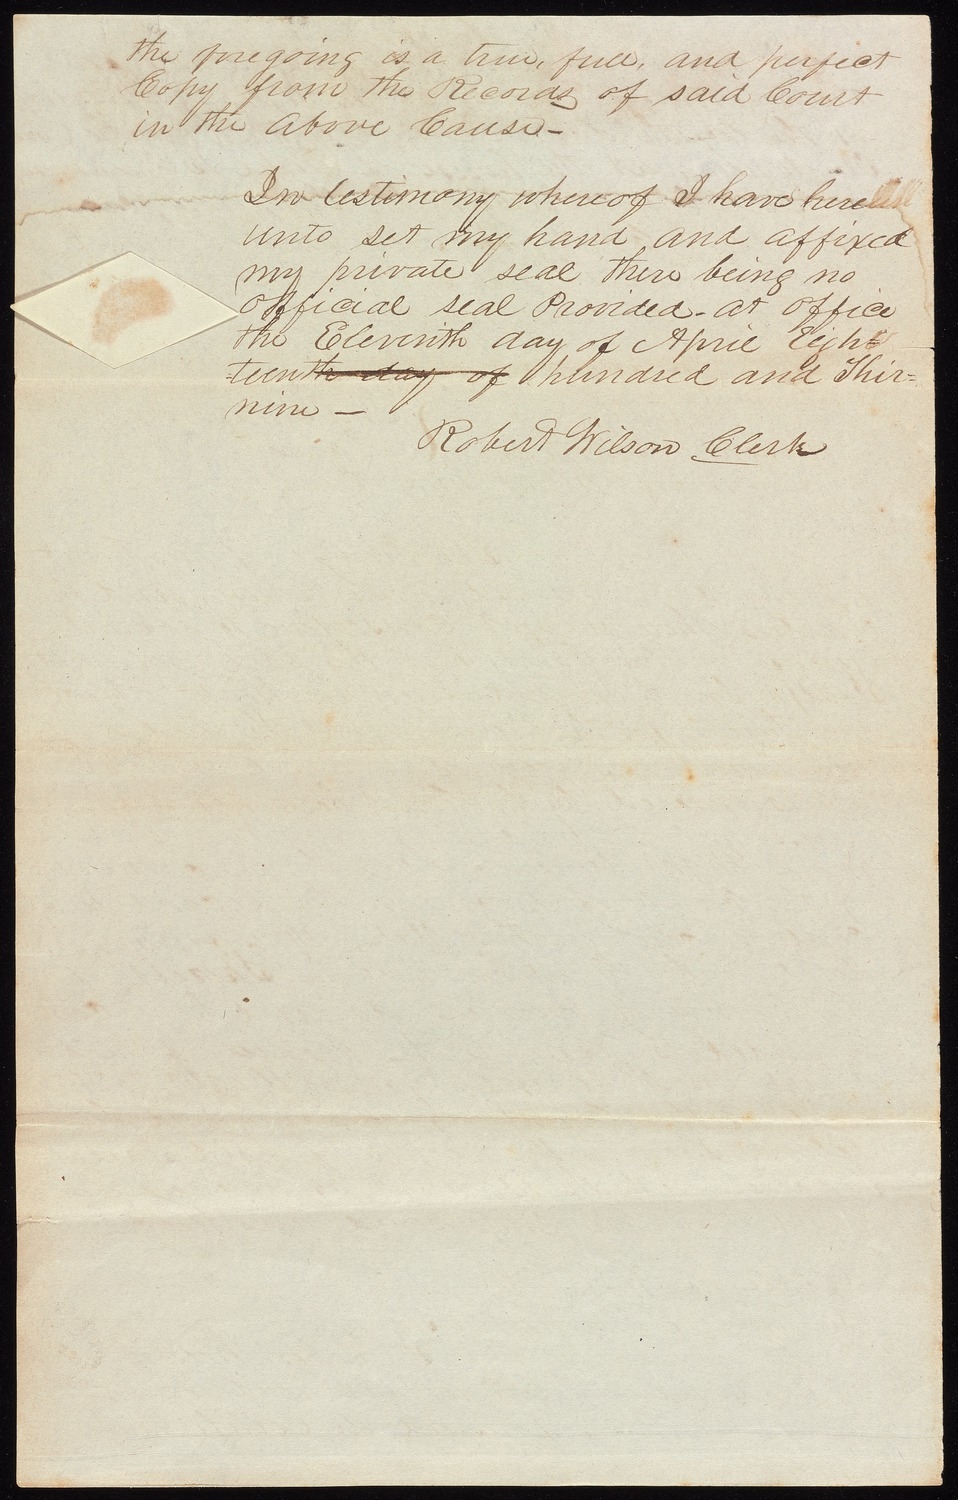 the foregoing is a true, full, and perfect
Copy from the Records of said Court
in the above Cause—
In testimony whereof I have here
unto set my hand and affixed
my private seal there being no
official seal Provided - at office
the Eleventh day of April Eigh-
teenth day of hundred and Thir=
nine —
Robert Wilson Clerk